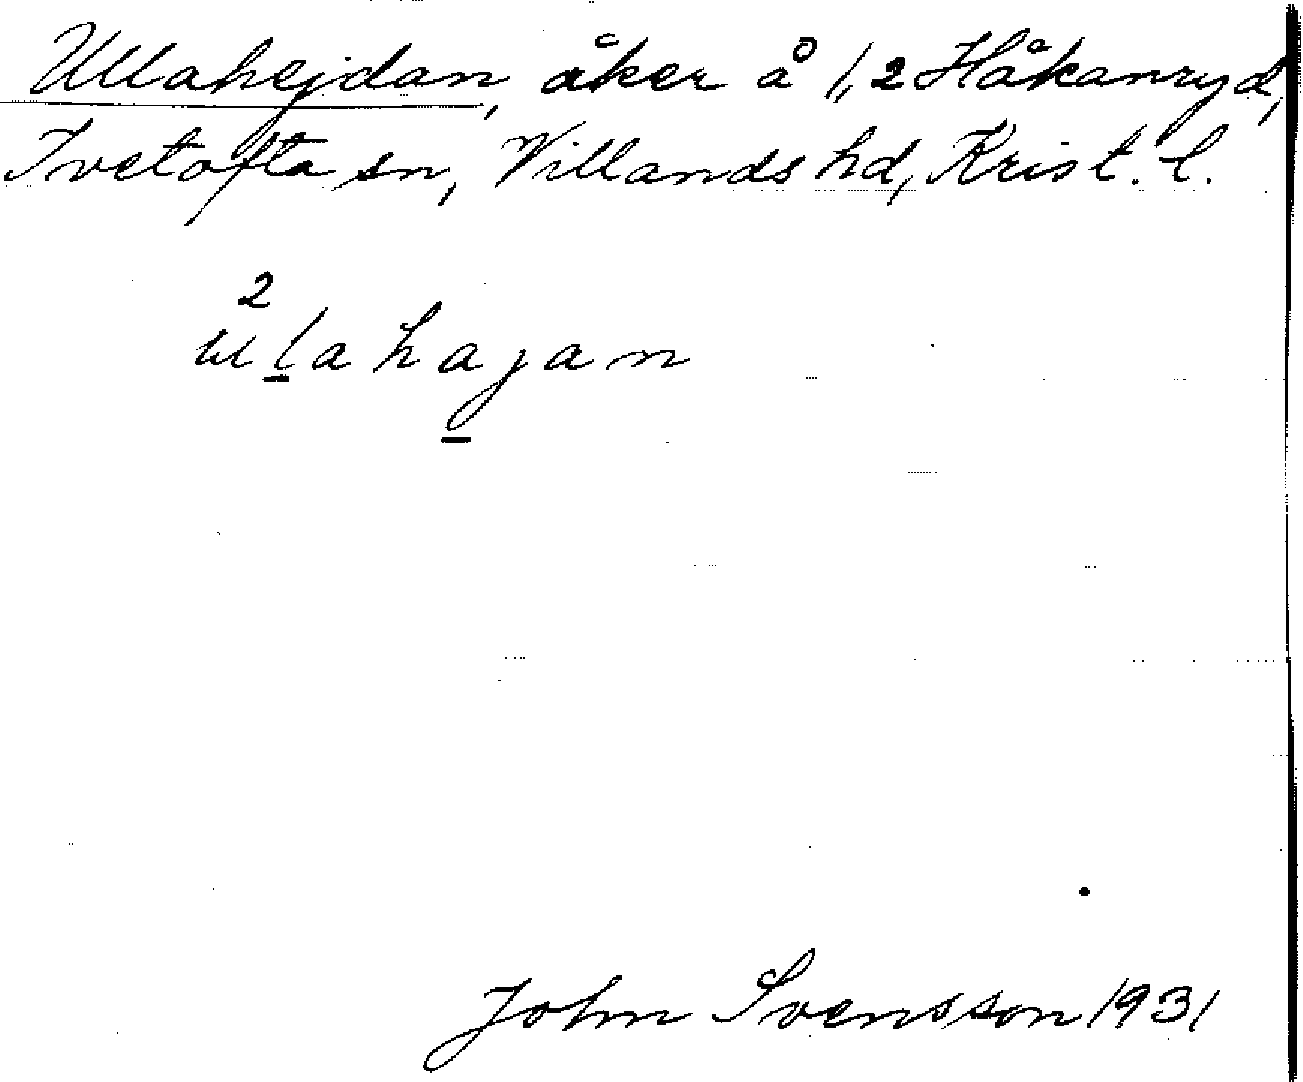 Ullahejdan, åker å 1, 2 Håkanryd,
Ivetofta sn, Villands hd, Krist. l.
2
ulahajan
John Svensson 1931